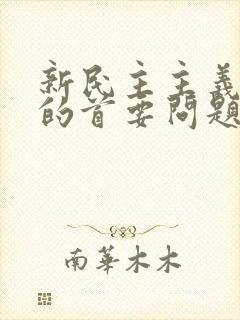 新民主主義
的首要問題
南華木木